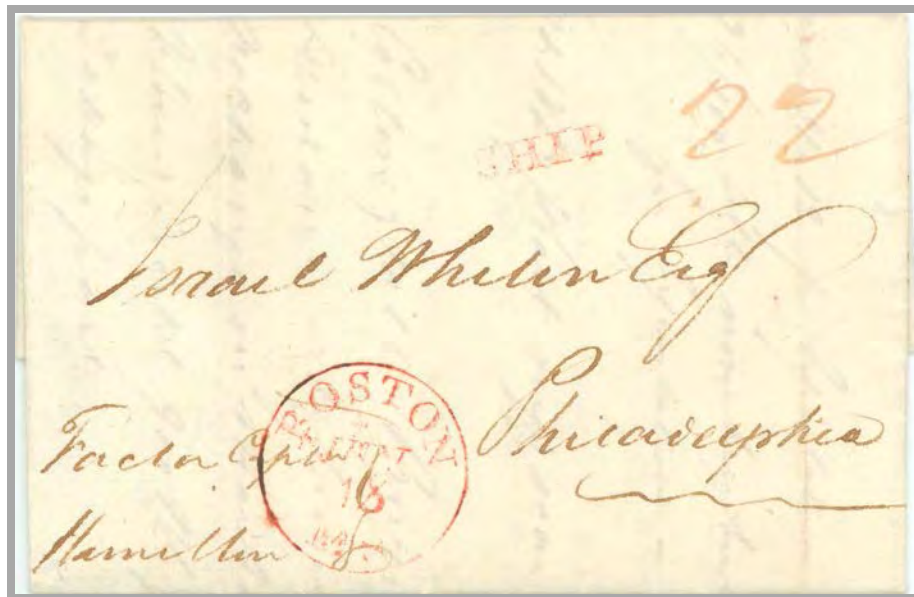 SHIP 22
Israel Whelen Esq
Philadelphia
BOSTON
18
MS
Factor Capt
Hamilton